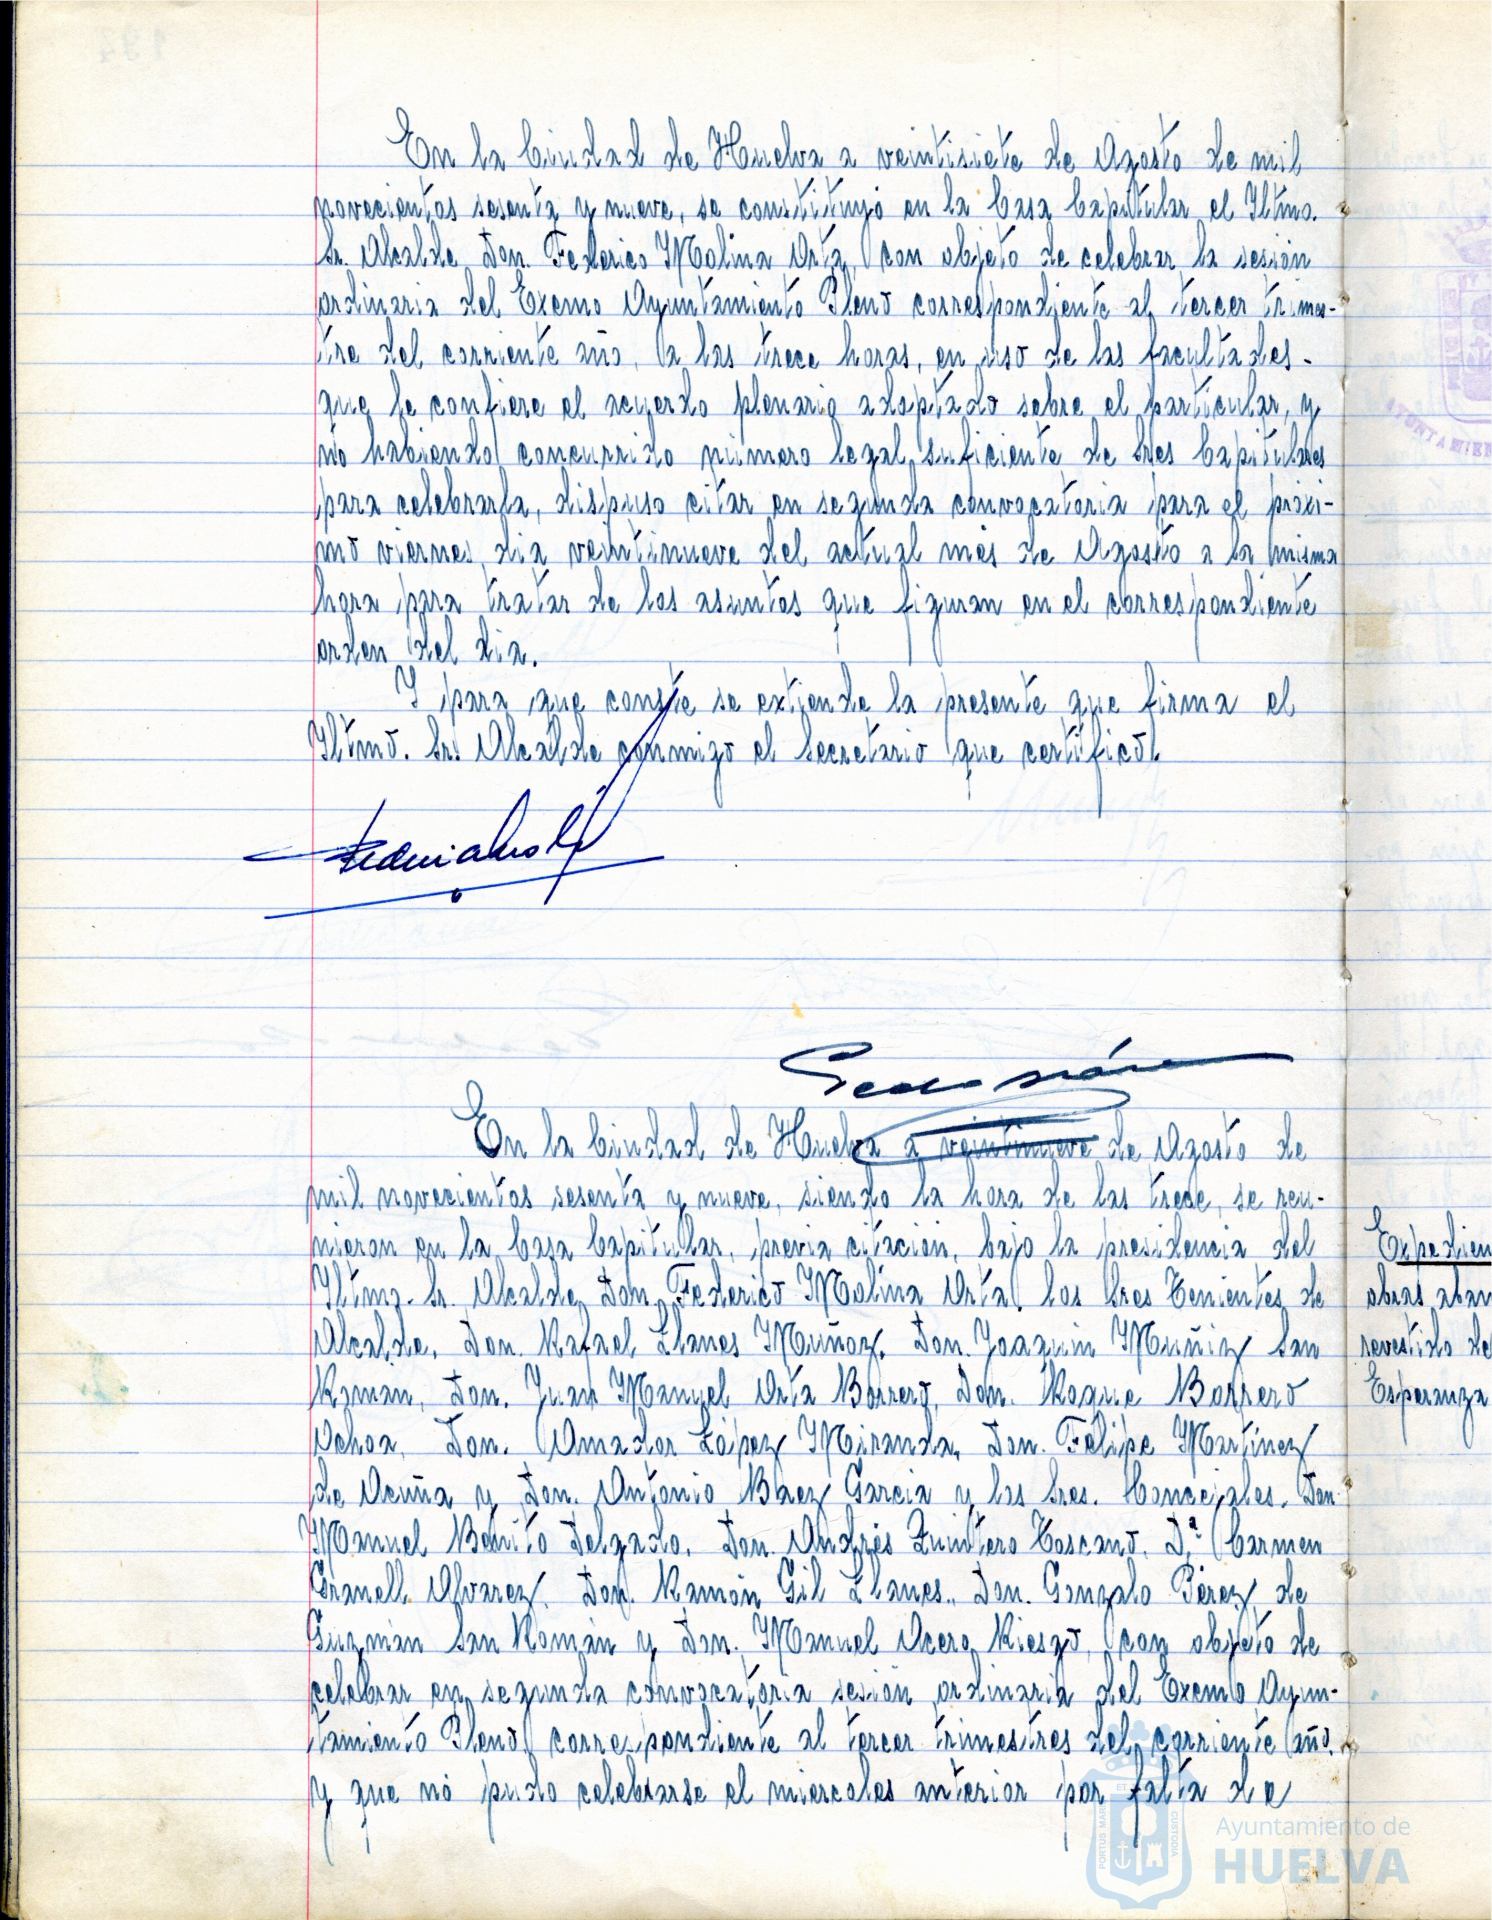 En la Ciudad de Huelva a veintisiete de Agosto de mil
novecientos sesenta y nueve, se constituyó en la Casa Capitular el Iltmo.
Sr. Alcalde Don. Federico Molina Orta, con objeto de celebrar la sesión
ordinaria del Excmo Ayuntamiento Pleno correspondiente al tercer trimes-
tre del corriente año, a las trece horas, en uso de las facultades-
que le confiere el acuerdo plenario adoptado sobre el particular, y
no habiendo concurrido número legal suficiente de Sres Capitulares
para celebrarla, dispuso citar en segunda convocatoria para el próxi-
mo viernes, dia veintinueve del actual mes de Agosto a la misma
hora para tratar de los asuntos que figuran en el correspondiente
orden del dia.
Y para que conste se extiende la presente que firma el
Iltmo. Sr. Alcalde conmigo el Secretario que certifico.
En la Ciudad de Huelva a veintinueve de Agosto de
mil novecientos sesenta y nueve, siendo la hora de las trece, se reu-
nieron en la Casa Capitular, previa citación, bajo la presidencia del
Iltmo. Sr. Alcalde Don. Federico Molina Orta, los Sres Tenientes de
Alcalde, Don. Rafael Llanes Muñoz, Don. Joaquin Muñiz San
Roman, Don. Juan Manuel Orta Borrero, Don. Roque Borrero
Ochoa, Don. Amador López Miranda, Don. Felipe Martínez
de Acuña y Don. Antonio Baez Garcia y los Sres. Concejales, Don
Manuel Benito Delgado, Don. Andrés Quintero Toscano, D.ª Carmen
Granell Alvarez, Don. Ramón Gil Llanes., Don. Gonzalo Pérez de
Guzmán San Román y Don. Manuel Acero Riesgo, con objeto de
celebrar en segunda convocatoria sesión ordinaria del Excmo Ayun-
tamiento Pleno correspondiente al tercer trimestres del corriente año,
y que no pudo celebrarse el miercoles anterior por falta de
Expedien
obras aban
revestido de
Esperanza
PORTUS MARIS ET CUSTODIA
Ayuntamiento de
HUELVA